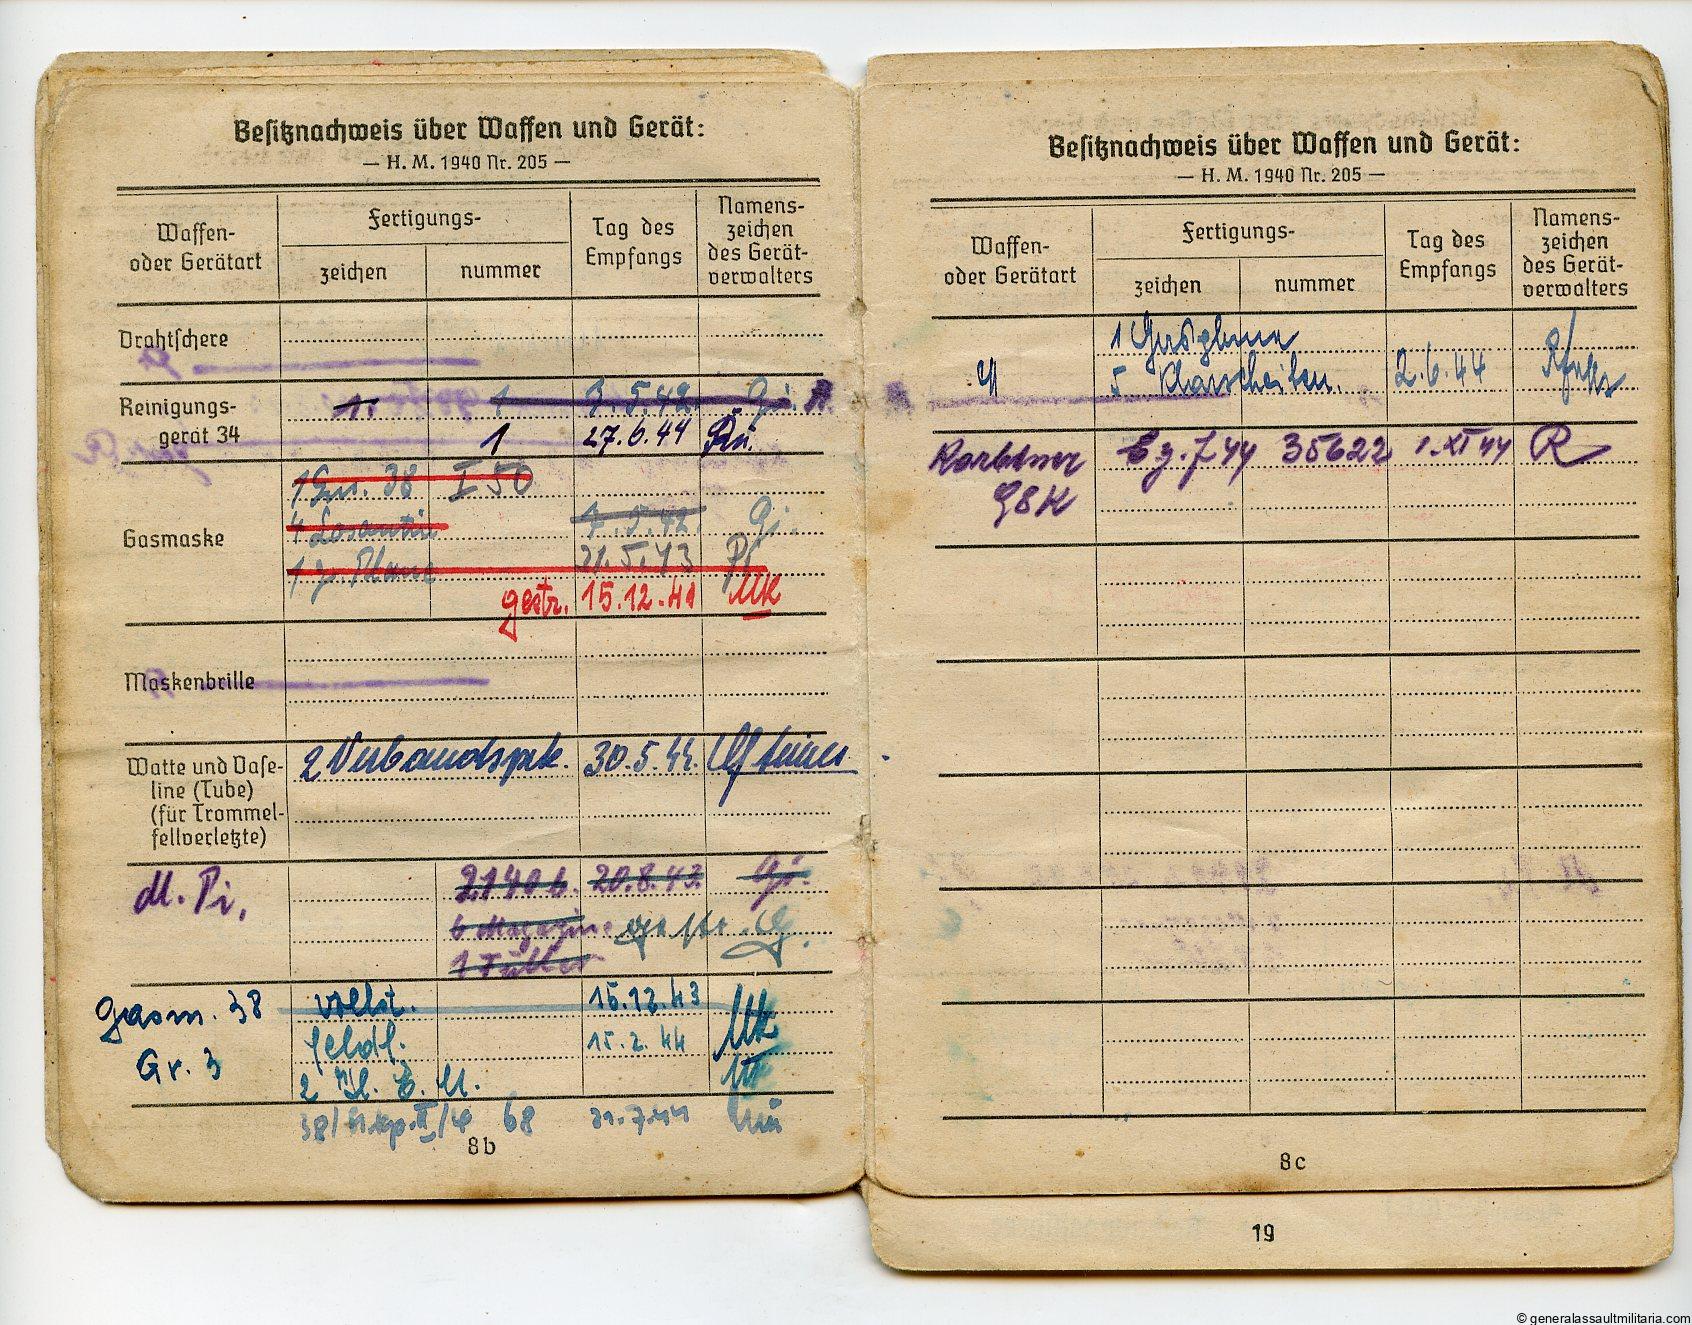 Besitznachweis über Waffen und Gerät:
— H. M. 1940 Nr. 205 —
Waffen-
oder Gerätart
Fertigungs-
zeichen
nummer
Tag des
Empfangs
Namens-
zeichen
des Gerät-
verwalters
Drahtschere
Reinigungs-
gerät 34
1. 1 7.5.42. Gi.
1 27.6.44 Kü.
Gasmaske
38 I 50
4 Losantin 7.5.42. Gi.
1 g. Plane 21.5.43
gestr. 15.12.41 Mk
Maskenbrille
Watte und Vase-
line (Tube)
(für Trommel-
fellverletzte)
2 Verbandspck. 30.5.44.
M. Pi. 2140 b. 20.8.43. Gi.
6 Magazine gestr. Gi.
1 Füller
Gasm. 38 vollst. 15.12.43 Mk
Gr. 3 15.2.44
2
38/ II/4 68 21.7.44
8b
Besitznachweis über Waffen und Gerät:
— H. M. 1940 Nr. 205 —
Waffen-
oder Gerätart
Fertigungs-
zeichen
nummer
Tag des
Empfangs
Namens-
zeichen
des Gerät-
verwalters
1 Gasplane
5 Klarscheiben. 2.6.44
Karbiner 44 35622 1.XI 44 R
98K
8c
19
© generalassaultmilitaria.com